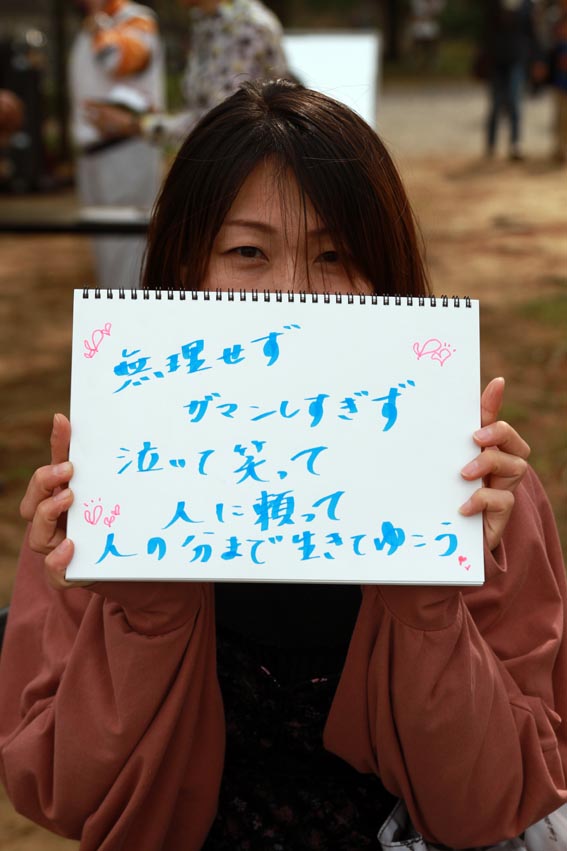 無理せず
ガマンしすぎず
泣いて笑って
人に頼って
人の分まで生きてゆこう